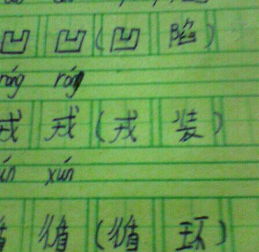 凹 凹 (凹 陷)
róng róng
戎 戎 (戎 装)
xún
循 (循 环)